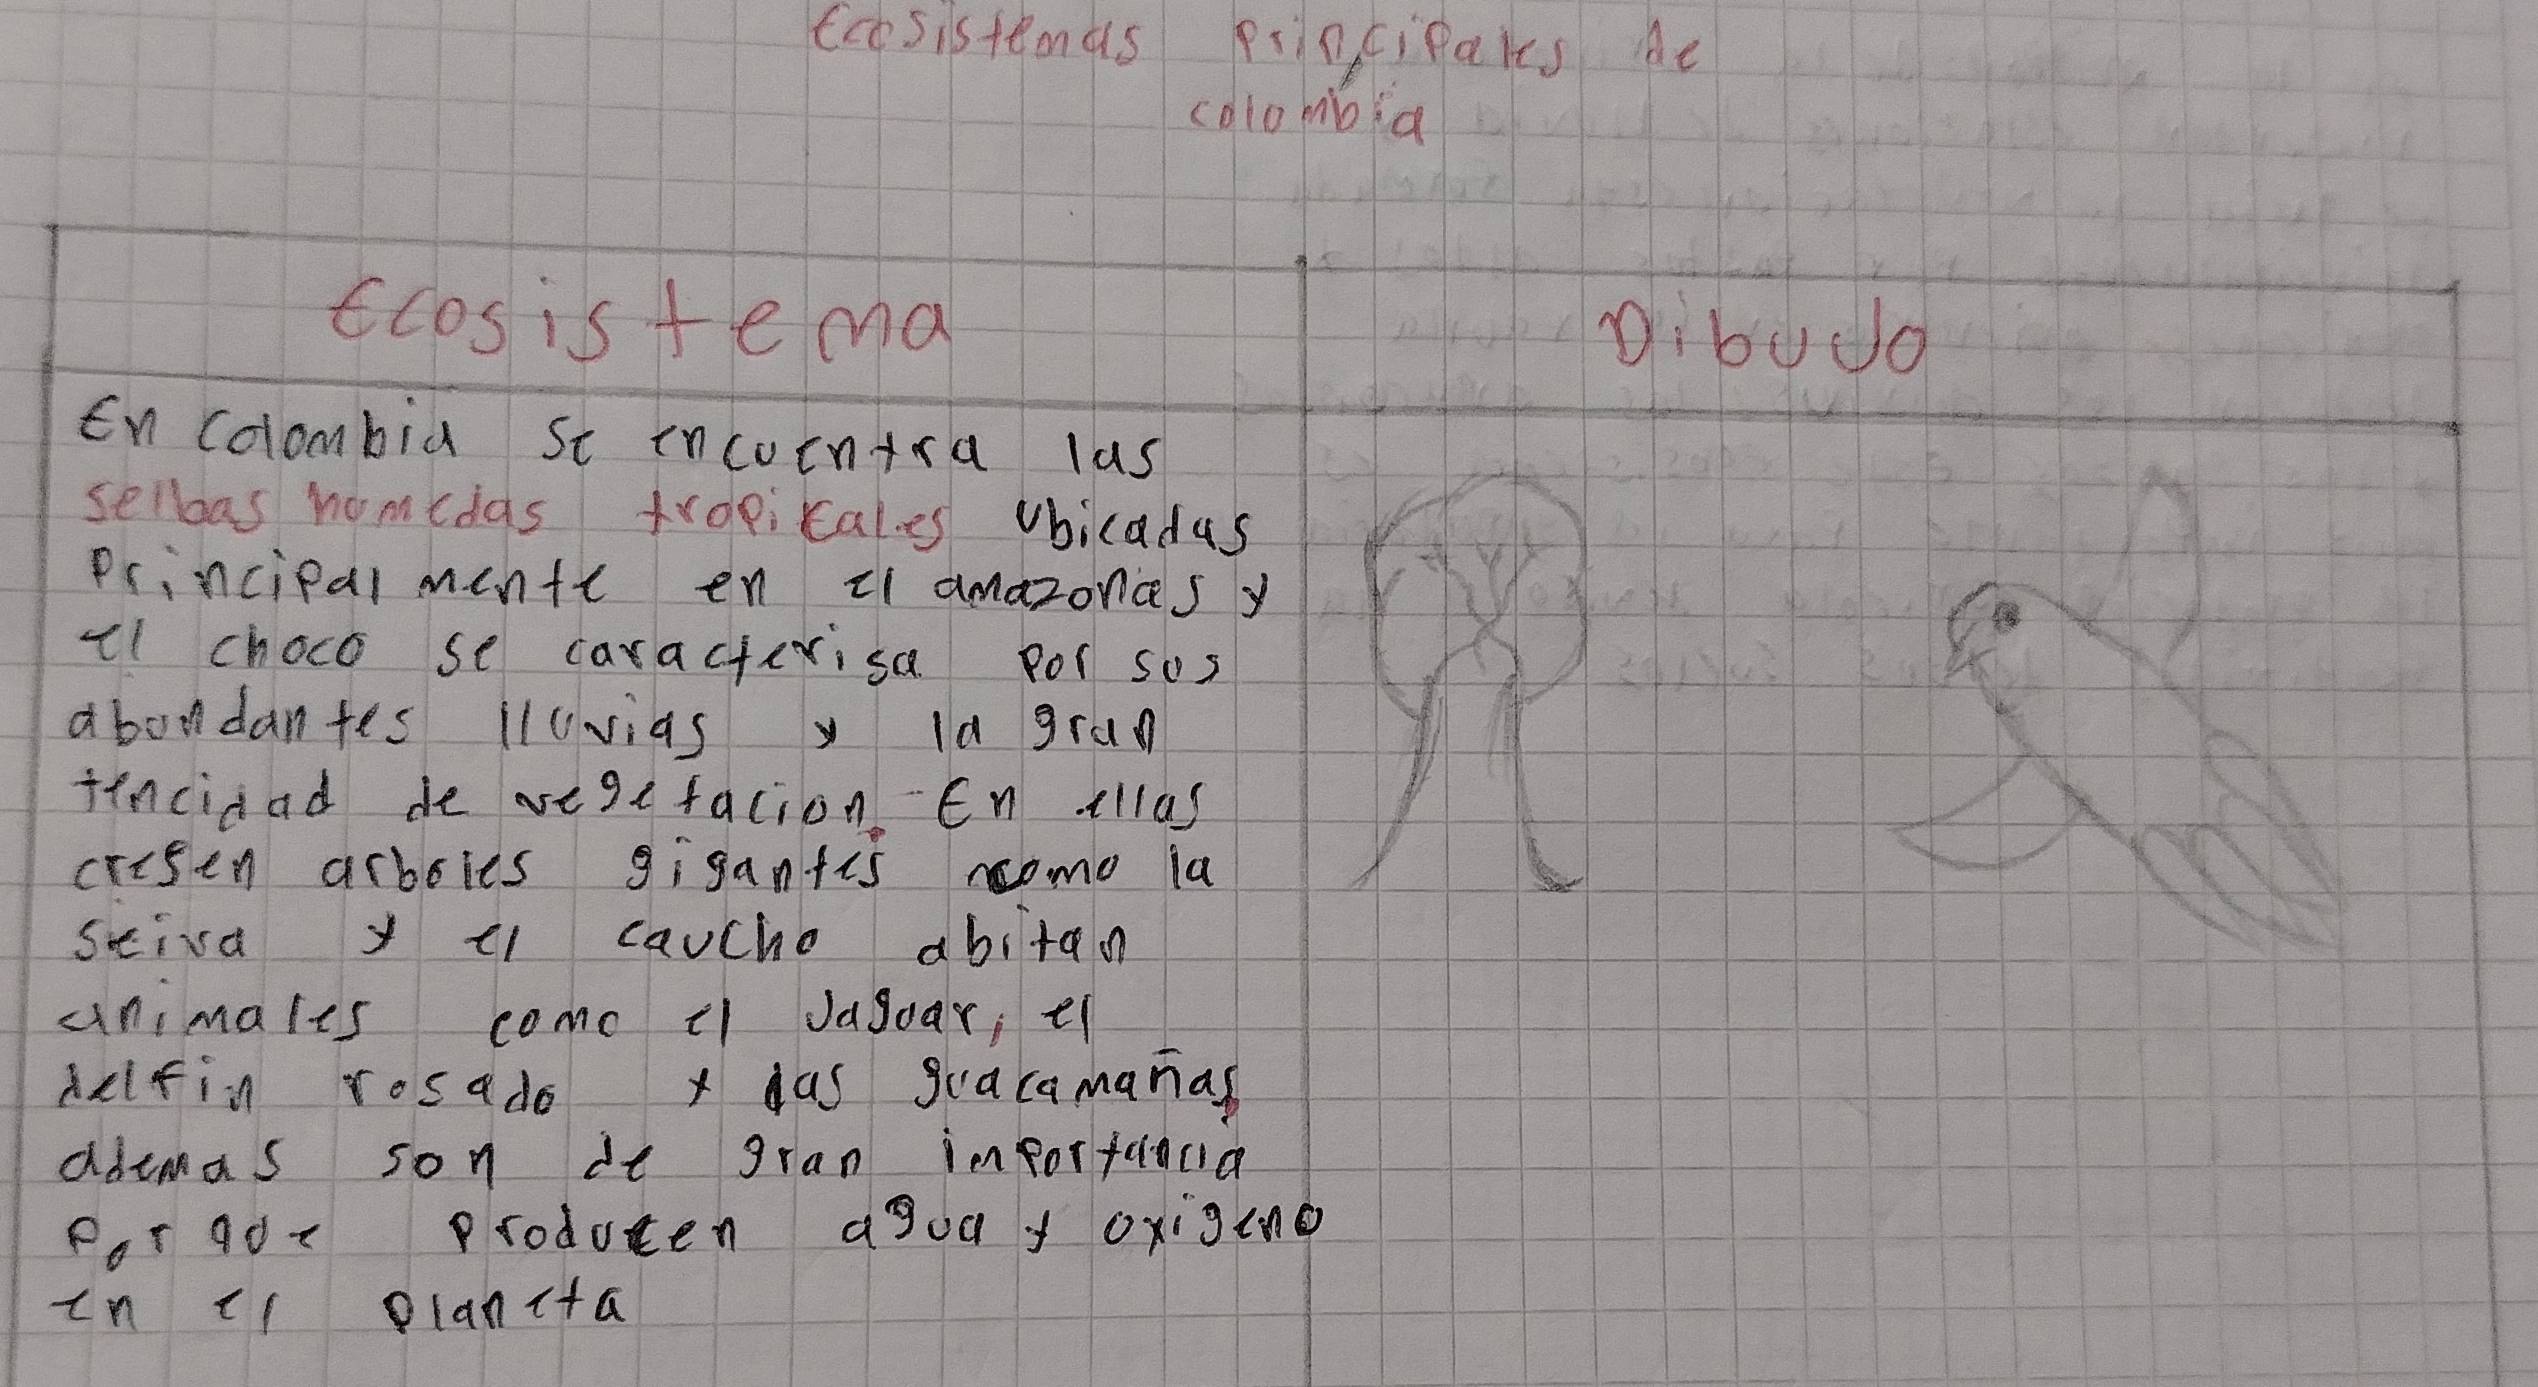 Ecosistemas principales de
colombia
Ecosistema
Dibujo
En colombia se encuentra las
selbas humedas tropicales ubicadas
principalmente en el amazonas y
el choco se caracterisa por sus
abundantes lluvias y la gran
tencidad de vegetacion. En ellas
cresen arboles gigantes como la
seiva y el caucho abitan
animales como el jaguar, el
delfin rosado y las guacamañas,
ademas son de gran importancia
por que producen agua y oxigeno
en el planeta